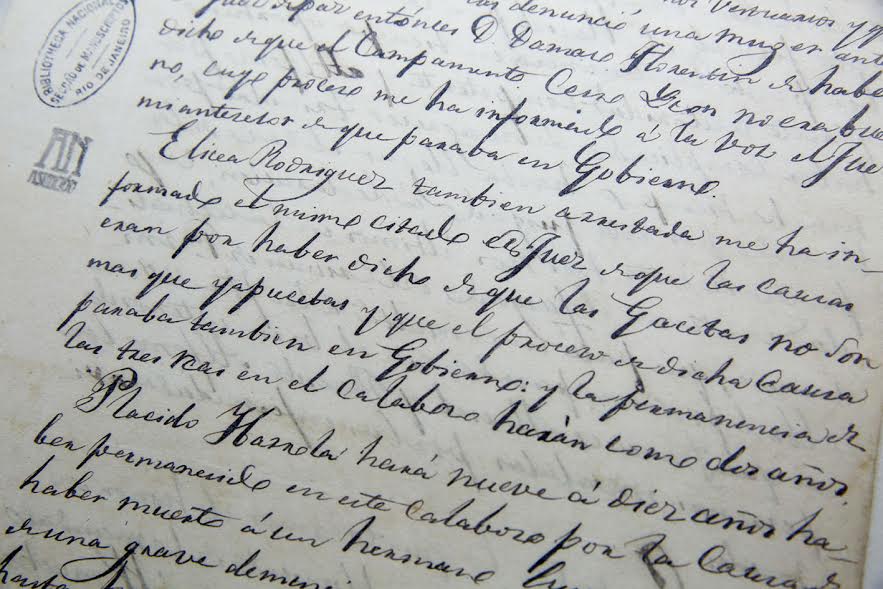 BIBLIOTHECA NACIONAL
SECÇÃO DE MANUSCRIPTOS
RIO DE JANEIRO
AN
ASUNCION
denunció una muger ante
por entónces D Damaso Florentin de habe
dicho de que el Campamento Cerro Leon no era bue
no, cuyo proceso me ha informado á la voz el Jue
mi antecesor de que paraba en Gobierno.
Elisea Rodriguez tambien arrestada me ha in-
formado el mismo citado Juez de que las causas
eran por haber dicho de que las Gacetas no son
mas que y que el proceso de dicha causa
paraba tambien en Gobierno: y la permanencia de
las tres reas en el calabozo harán como dos años.
Placido hará nueve á diez años ha-
ber permanecido en este calabozo por la causa de
haber muerto á un hermano
de una grave
hasta